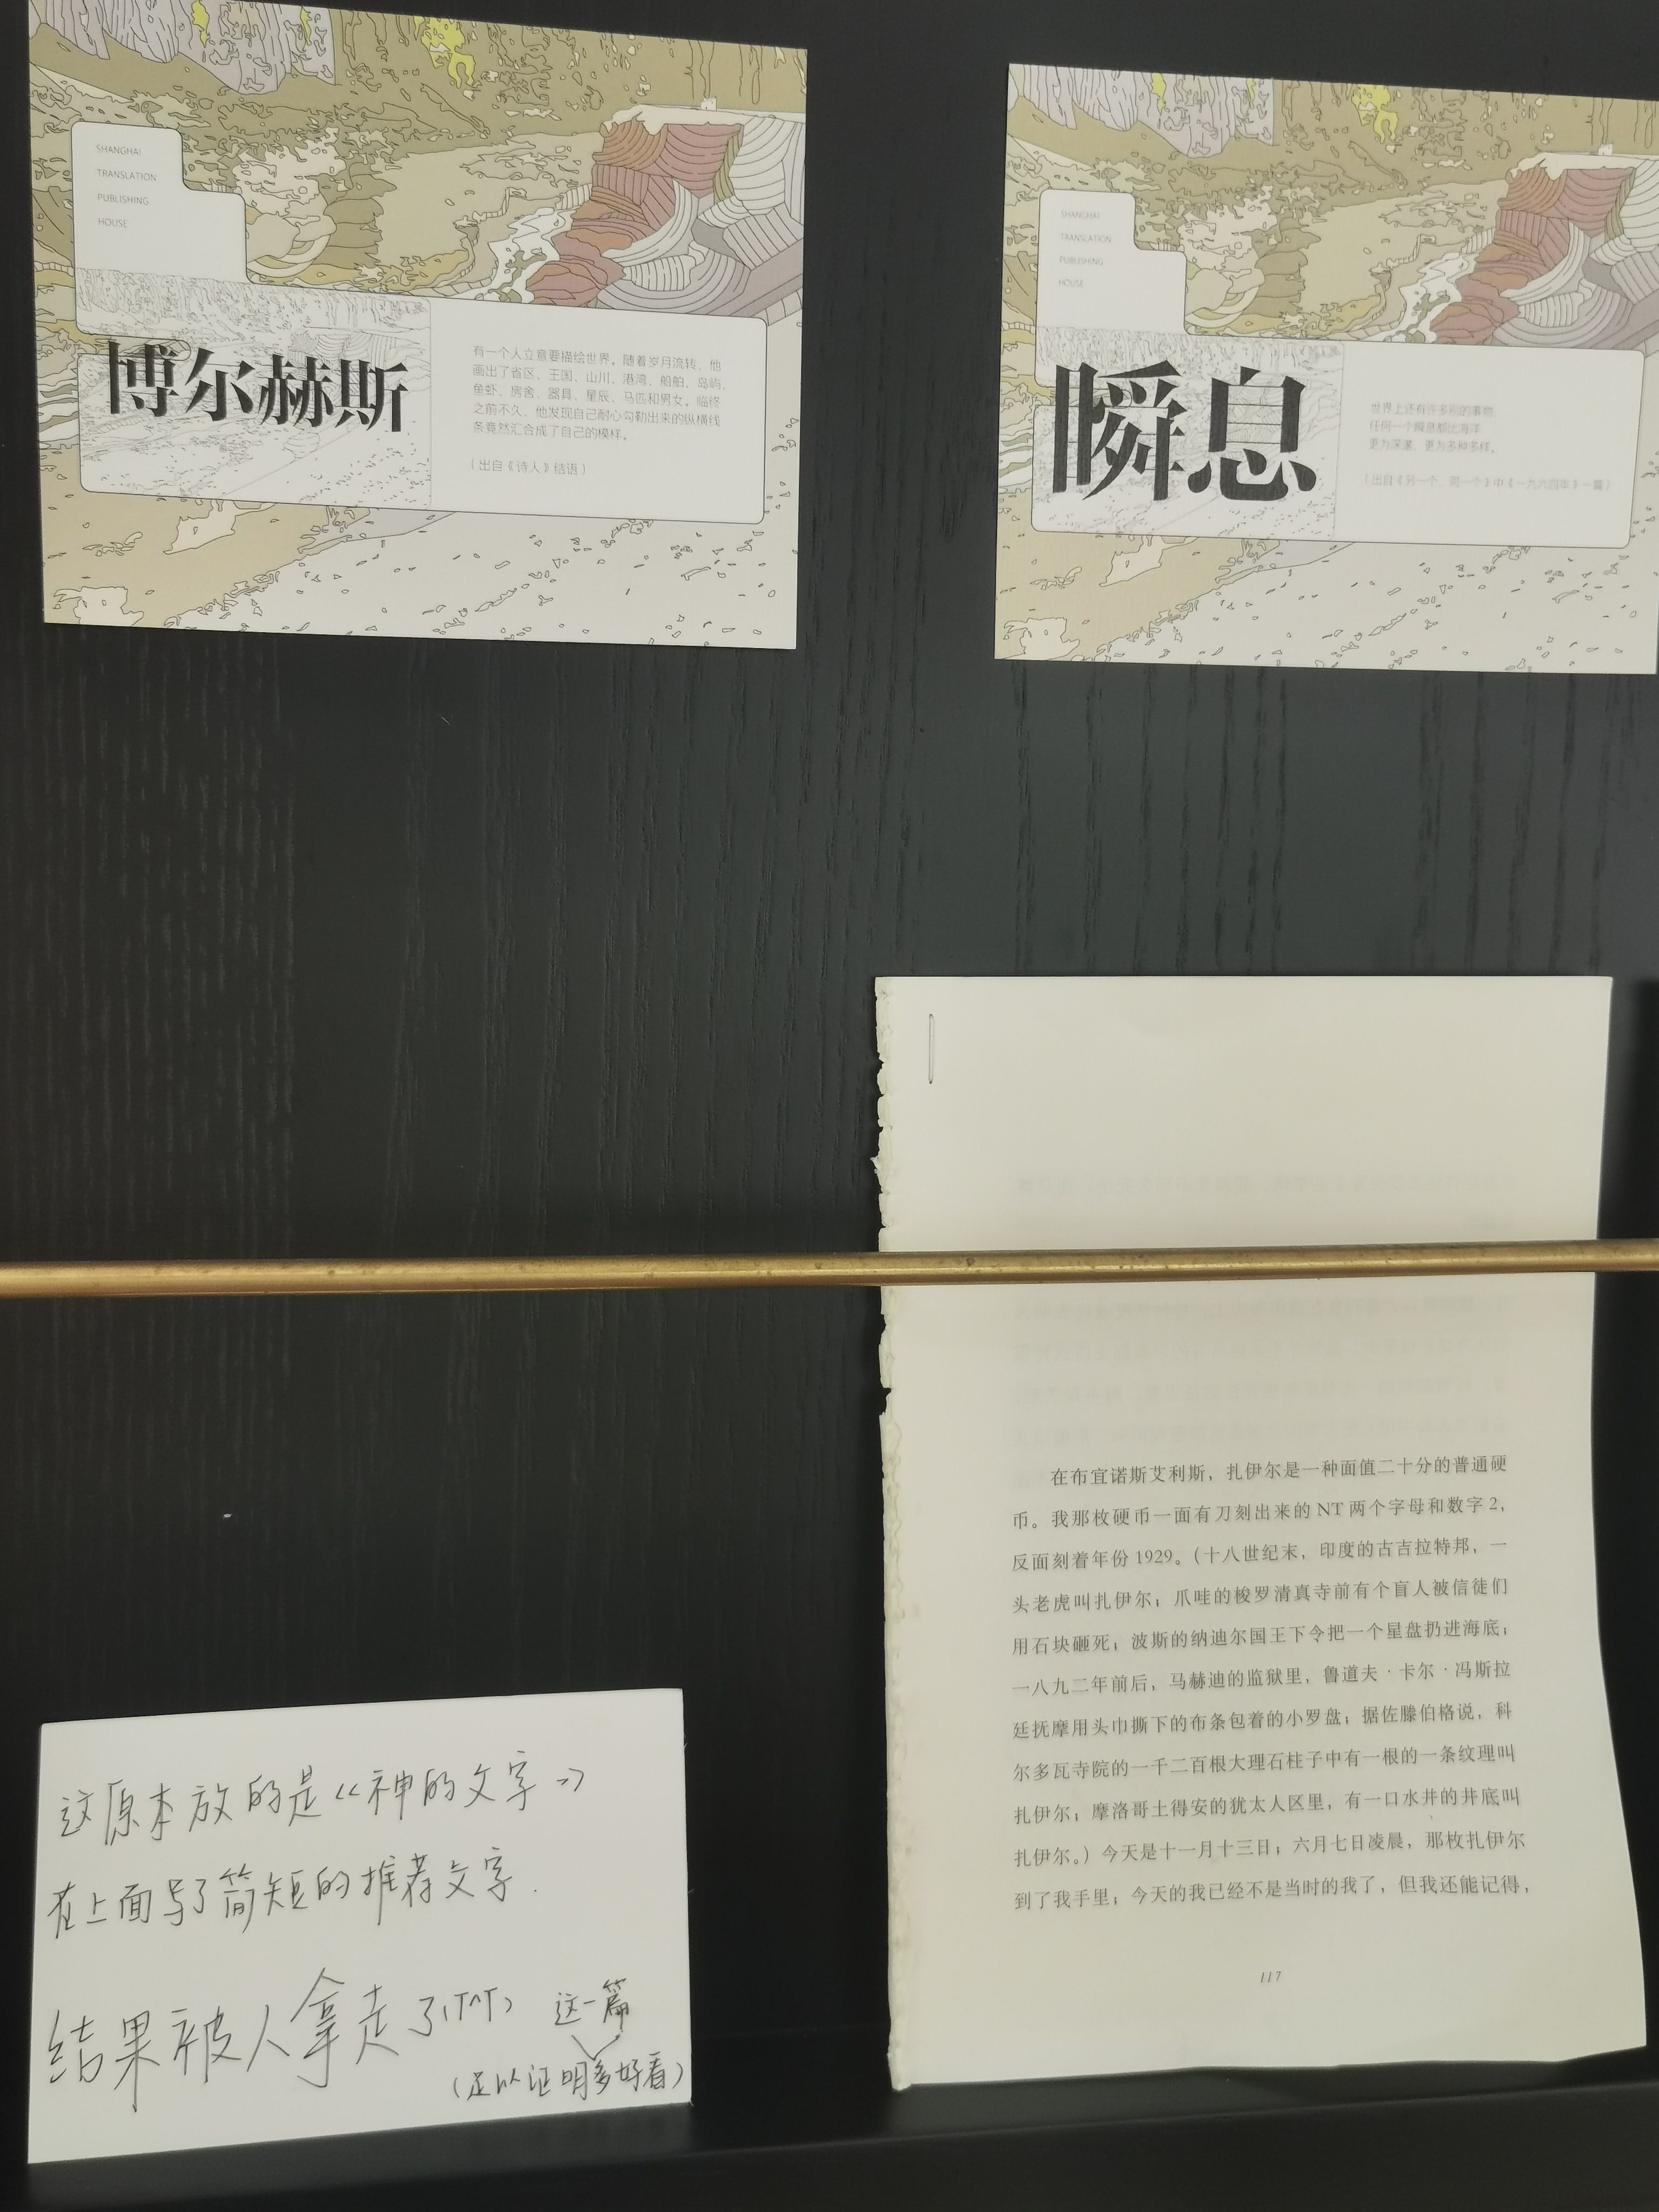 SHANGHAI
TRANSLATION
PUBLISHING
HOUSE
博尔赫斯
有一个人立意要描绘世界。随着岁月流转，他
画出了省区、王国、山川、港湾、船舶、岛屿、
鱼虾、房舍、器具、星辰、马匹和男女。临终
之前不久，他发现自己耐心勾勒出来的纵横线
条竟然汇合成了自己的模样。
（出自《诗人》结语）
SHANGHAI
TRANSLATION
PUBLISHING
HOUSE
瞬息
世界上还有许多别的事物
任何一个瞬息都比海洋
更为深邃、更为多种多样。
（出自《另一个，同一个》中《一九六四年》一篇）
在布宜诺斯艾利斯，扎伊尔是一种面值二十分的普通硬
币。我那枚硬币一面有刀刻出来的 NT 两个字母和数字 2，
反面刻着年份 1929。（十八世纪末，印度的古吉拉特邦，一
头老虎叫扎伊尔；爪哇的梭罗清真寺前有个盲人被信徒们
用石块砸死；波斯的纳迪尔国王下令把一个星盘扔进海底；
一八九二年前后，马赫迪的监狱里，鲁道夫·卡尔·冯斯拉
廷抚摩用头巾撕下的布条包着的小罗盘；据佐滕伯格说，科
尔多瓦寺院的一千二百根大理石柱子中有一根的一条纹理叫
扎伊尔；摩洛哥土得安的犹太人区里，有一口水井的井底叫
扎伊尔。）今天是十一月十三日；六月七日凌晨，那枚扎伊尔
到了我手里；今天的我已经不是当时的我了，但我还能记得，
117
这原本放的是《神的文字》
在上面写了简短的推荐文字.
结果被人拿走了(T^T)
这一篇
(足以证明多好看)